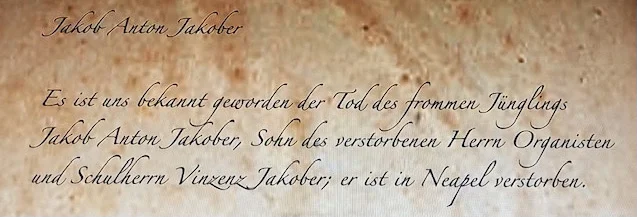 Jakob Anton Jakober
Es ist uns bekannt geworden der Tod des frommen Jünglings
Jakob Anton Jakober, Sohn des verstorbenen Herrn Organisten
und Schulherrn Vinzenz Jakober; er ist in Neapel verstorben.